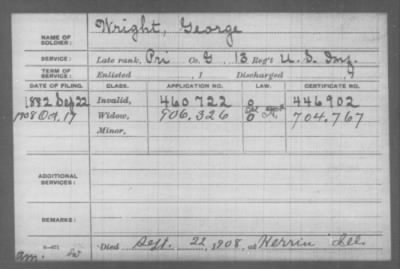 Wright, George
NAME OF SOLDIER:
SERVICE: Late rank, Pri Co. G, 13 Reg't U. S. Inf.
TERM OF SERVICE: Enlisted , 1 Discharged , 1
DATE OF FILING. CLASS. APPLICATION NO. LAW. CERTIFICATE NO.
1882 Sep 22 Invalid, 460722 446902
1908 Oct. 17 Widow, 906.326 704.767
Minor,
ADDITIONAL SERVICES:
REMARKS:
Died Sept. 22, 1908, at Herrin Ill.